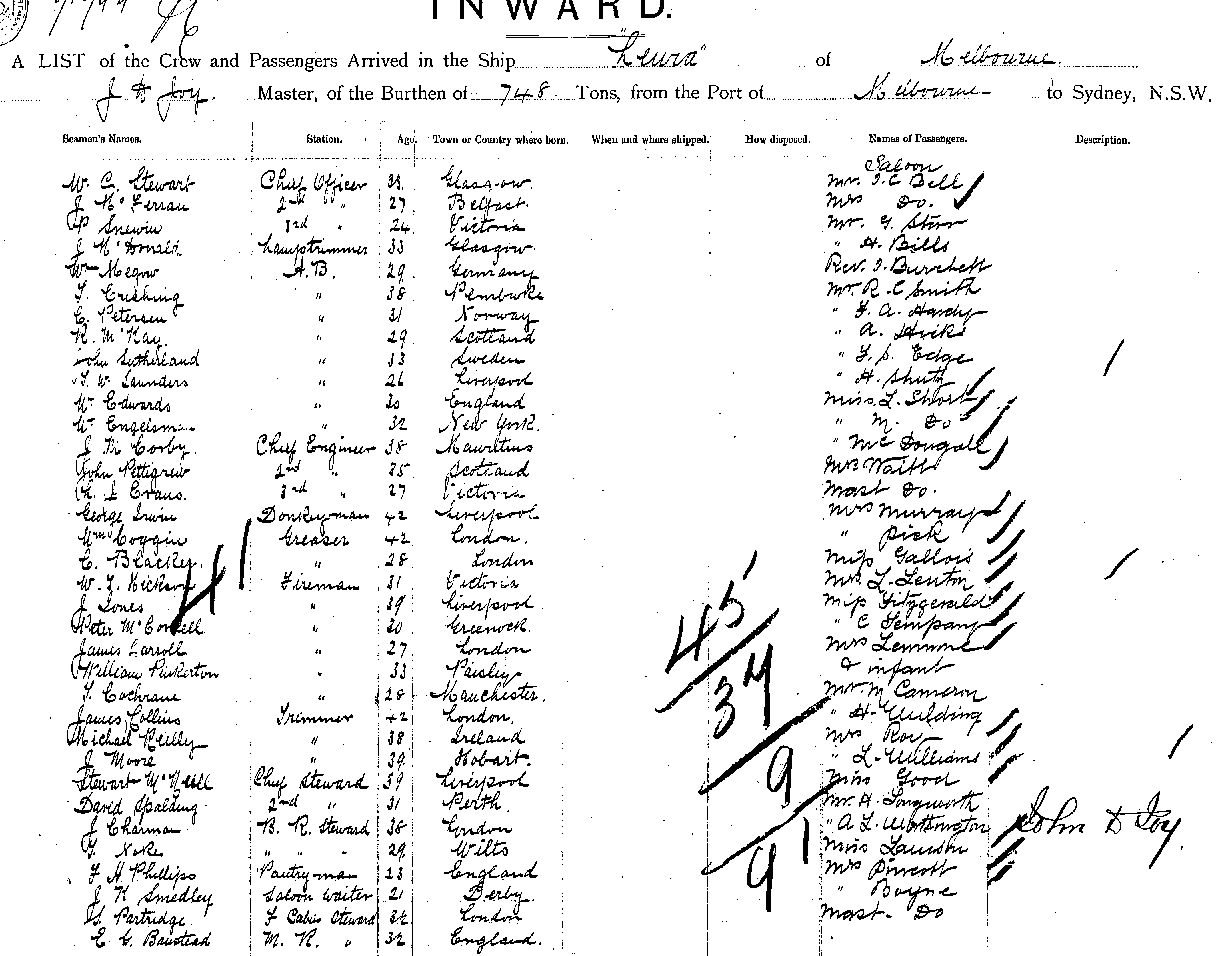 INWARD.
A LIST of the Crew and Passengers Arrived in the Ship "Leura" of Melbourne.
J D Joy. Master, of the Burthen of 748 Tons, from the Port of Melbourne to Sydney, N.S.W.
Seamen's Names. Station. Age. Town or Country where born. When and where shipped. How disposed. Names of Passengers. Description.
Saloon
W. C. Stewart Chief Officer 38 Glasgow. Mr. J. C Bell
J McFerran 2nd " 27 Belfast. Mrs Do.
P Snewin 3rd " 24 Victoria Mr. G. Starr
J McDonald Lamptrimmer 33 Glasgow. " H. Bills
Wm Megow A.B. 29 Germany Rev. J. Burchett
T. Cushing " 38 Pembroke Mr. R. C Smith
C. Petersen " 31 Norway " F. A. Hardy
R. McKay. " 29 Scotland " A. Hicks
John Sutherland " 33 Sweden " F. S. Edge
T. W. Saunders " 26 Liverpool " H.
W. Edwards " 30 England Miss L. Short
W. Engelsman " 32 New York. " M. Do
J M Corby. Chief Engineer 38 Mauritius " McDougall
John Pettigrew 2nd " 35 Scotland Mrs Waitt
Evans. 3rd " 27 Victoria Mast Do.
George Irwin Donkeyman 42 Liverpool Mrs Murray
Wm Coggin Greaser 42 London. " Pick
C. Blackey " 28 London Miss Gallois
W. J. Hickson Fireman 31 Victoria Mrs. L. Lenton
J Jones " 39 Liverpool Miss Fitzgerald
Peter McConnell " 30 Greenock. " C Sempany
James Carroll " 27 London Mrs Lemme
William Pinkerton " 33 Paisley & infant
T. Cochrane " 28 Manchester. Mr. M Cameron
James Collins Trimmer 42 London. " H. Wilding
Michael Reilly " 38 Ireland Mrs Row
J Moore " 39 Hobart. " L. Williams
Stewart McNeill Chief Steward 39 Liverpool Miss Good
David Spalding 2nd " 31 Perth. Mr. H. Longworth
J Charman B. R. Steward 38 London " A L. Worthington
Noke " " " 29 Wilts Miss Lawson
F H Phillips Pantryman 23 England Mrs
J K Smedley Saloon Waiter 21 Derby. " Boyne
Partridge F Cabin Steward 32 London Mast. Do
E G. Banstead M. R. " 32 England.
41
45
34
9
91
John D Joy.